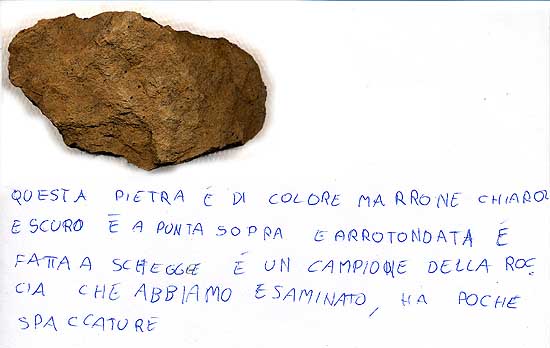 QUESTA PIETRA É DI COLORE MARRONE CHIARO
E SCURO É A PUNTA SOPRA E ARROTONDATA É
FATTA A SCHEGGE É UN CAMPIONE DELLA ROC
CIA CHE ABBIAMO ESAMINATO, HA POCHE
SPACCATURE